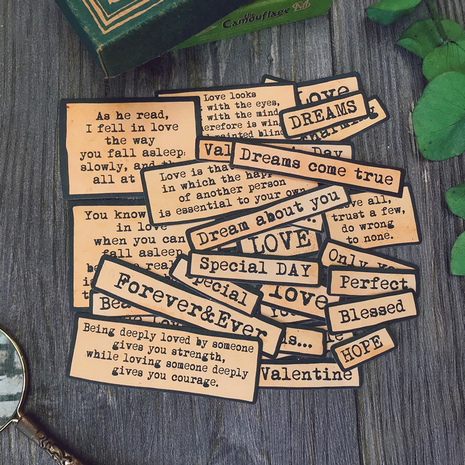 Camouflage
As he read,
I fell in love
the way
you fall asleep:
slowly, and th
all at
Love looks
with the eyes,
with the mind
erefore is win
painted blin
Love
DREAMS
Val
Day
Dreams come true
Love is tha
in which the hap
of another person
is essential to your own
Dream about you
ve all,
trust a few,
do wrong
to none.
You know
in love
when you can
fall asleep
rea
LOVE
Special DAY
Only yo
Perfect
Special
love
Blessed
Forever&Ever
Be
is...
HOPE
Being deeply loved by someone
gives you strength,
while loving someone deeply
gives you courage.
Valentine